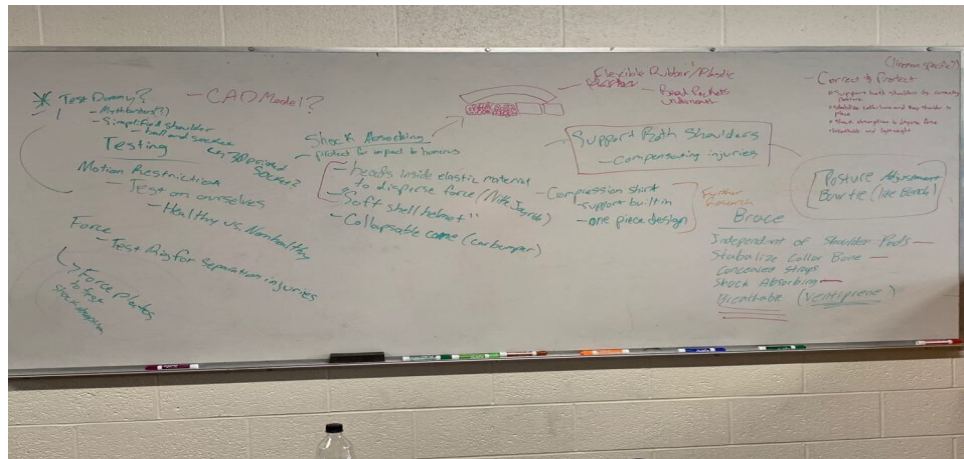 * Test Dummy?
- Mythbusters(?)
- Simplified shoulder
- ball and socket
↳ 3D printed socket?
- CAD Model?
Testing
Motion Restriction
- Test on ourselves
- Healthy vs. Nonhealthy
Force
- Test Rig for Separation injuries
↳ Force plates
to
shock absorption
Shock Absorbing
- protect for impact to humerus
- beads inside elastic material
to disperse force
- Soft shell helmet"
- Collapsable cone (car bumper)
Flexible Rubber/Plastic
- Bead Pockets
Underneath
Support Both Shoulders
- Compensating injuries
- Compression shirt
support built in
- one piece design
Further
Research
Brace
Independent of Shoulder Pads
Stabalize Collar Bone
Concealed Straps
Shock Absorbing
Breathable (Ventiprene)
Posture Adjustment
Bowtie (like Bench)
- Correct & Protect
Support both shoulders by correcting
posture
stabilize collarbone and keep shoulder in
place
Shock absorption to
and lightweight